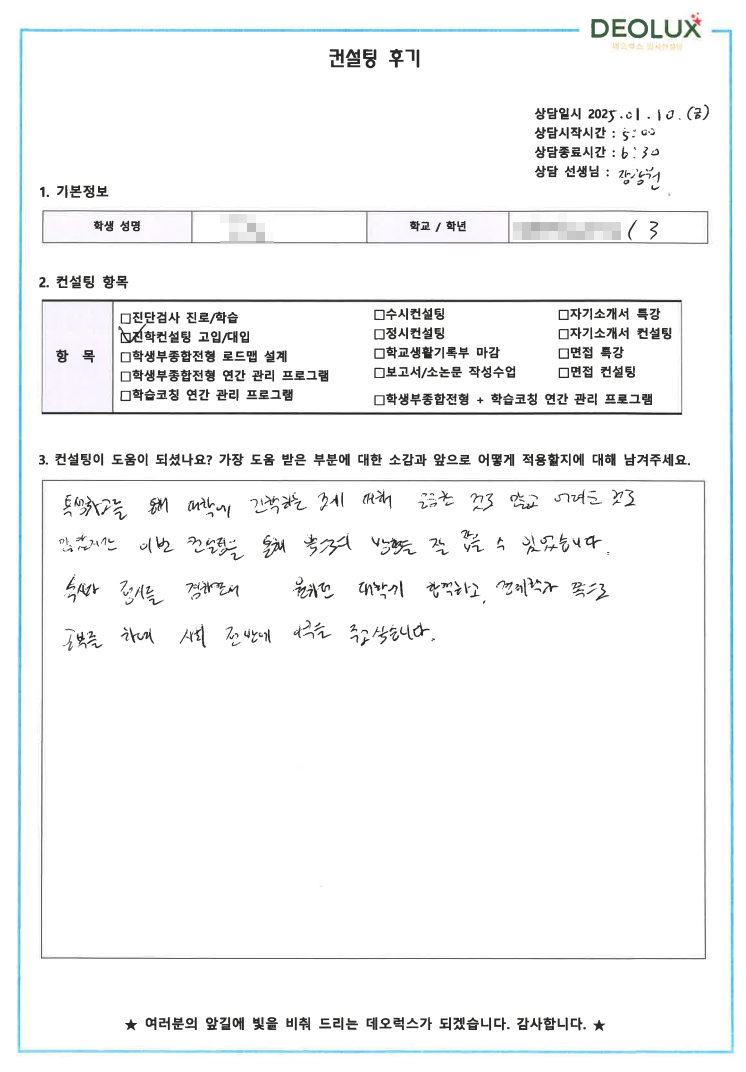 DEOLUX
데오럭스 입시컨설팅
컨설팅 후기
상담일시 2025.01.10.(금)
상담시작시간 : 5:00
상담종료시간 : 6:30
상담 선생님 :
1. 기본정보
학생 성명
학교 / 학년
/ 3
2. 컨설팅 항목
항 목
□진단검사 진로/학습
□진학컨설팅 고입/대입
□학생부종합전형 로드맵 설계
□학생부종합전형 연간 관리 프로그램
□학습코칭 연간 관리 프로그램
□수시컨설팅
□정시컨설팅
□학교생활기록부 마감
□보고서/소논문 작성수업
□학생부종합전형 + 학습코칭 연간 관리 프로그램
□자기소개서 특강
□자기소개서 컨설팅
□면접 특강
□면접 컨설팅
3. 컨설팅이 도움이 되셨나요? 가장 도움 받은 부분에 대한 소감과 앞으로 어떻게 적용할지에 대해 남겨주세요.
대학에 진학하는 것에 대해 궁금한 것도 많고 어려운 것도
많았지만 이번 컨설팅을 통해 방향을 잘 잡을 수 있었습니다.
수시와 정시를 겸하면서 원하던 대학에 합격하고, 경제학과 쪽으로
공부를 하여 사회 전반에 주고싶습니다.
★ 여러분의 앞길에 빛을 비춰 드리는 데오럭스가 되겠습니다. 감사합니다. ★